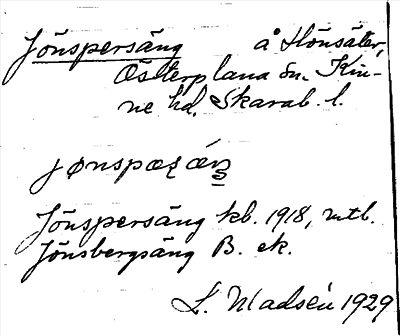 Jönspersäng å Hönsäter,
Österplana sn. Kin-
ne hd. Skarab. l.
jønspæʂæŋ
Jönspersäng kb. 1918, mtl.
Jönsbergsäng B. ek.
L. Madsén 1929